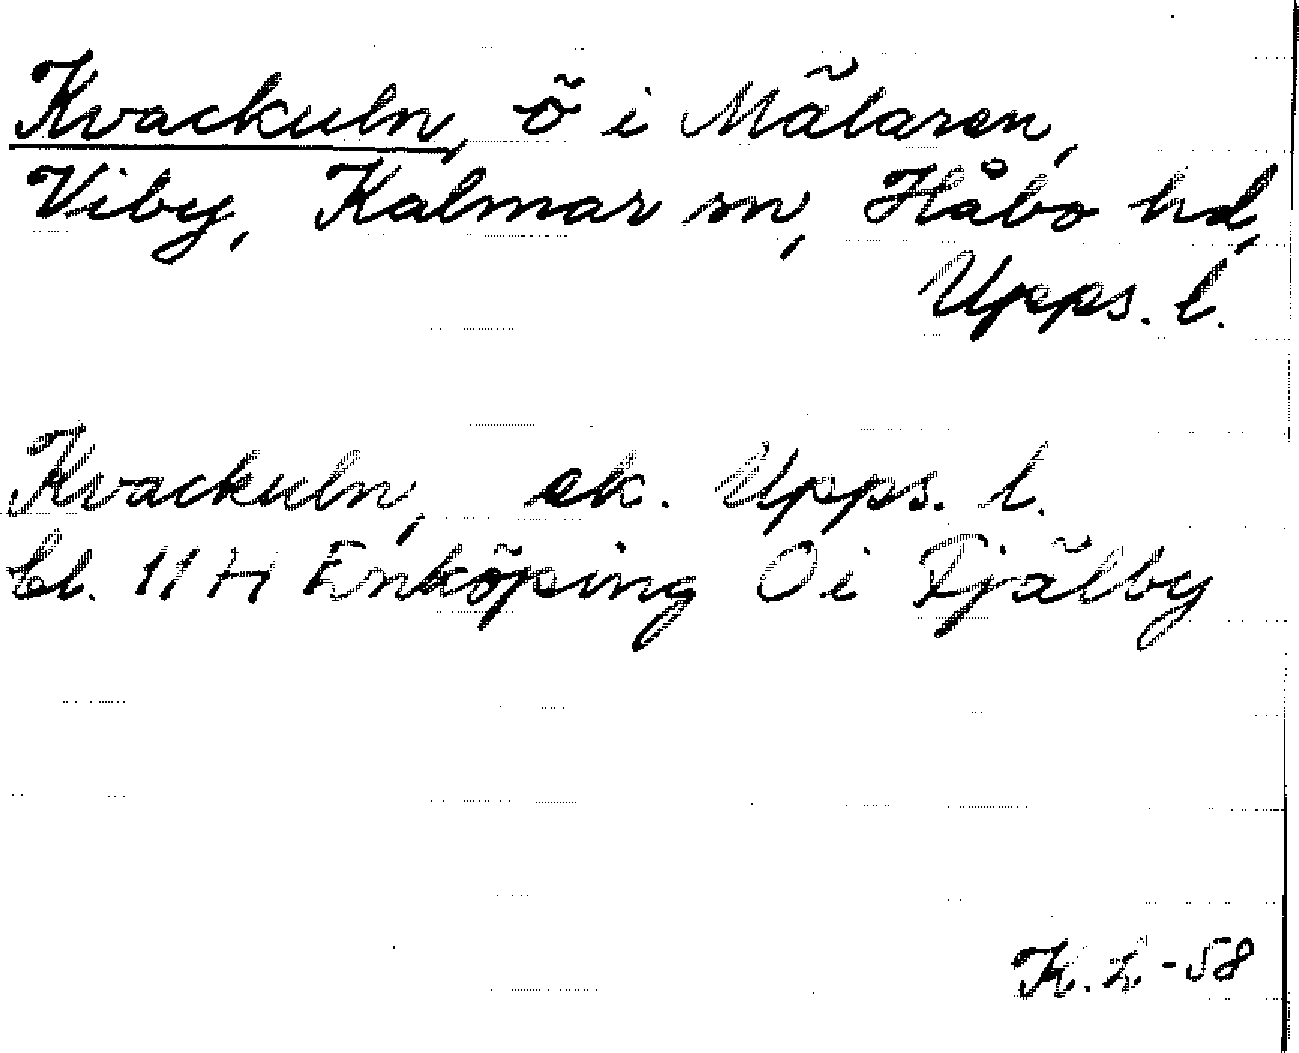 Kvackuln, ö i Mälaren,
Viby, Kalmar sn, Håbo hd,
Upps. l.
Kvackuln, ek. Upps. l.
bl. 11 H Enköping Ö i Fjälby
K. L -58